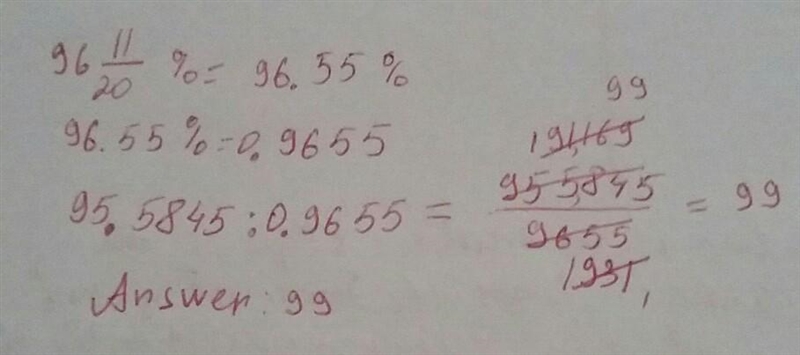 96 11/20 % = 96.55 %
96.55 % = 0.9655
99
191,169
95.5845 : 0.9655 = 955845/9655 = 99
1931,
Answer: 99